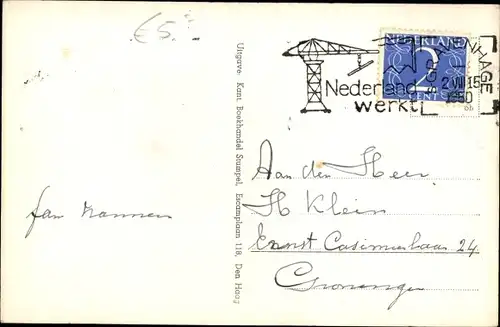 €5.-
Uitgave: Kant. Boekhandel Stumpel, Escamplaan 118, Den Haag
Nederland
werkt
NEDERLAND
2
CENT
'S GRAVENHAGE
2 VII 15
1950
Aan den Heer
H Klein
Ernst Casimirlaan 24
Groningen
fam